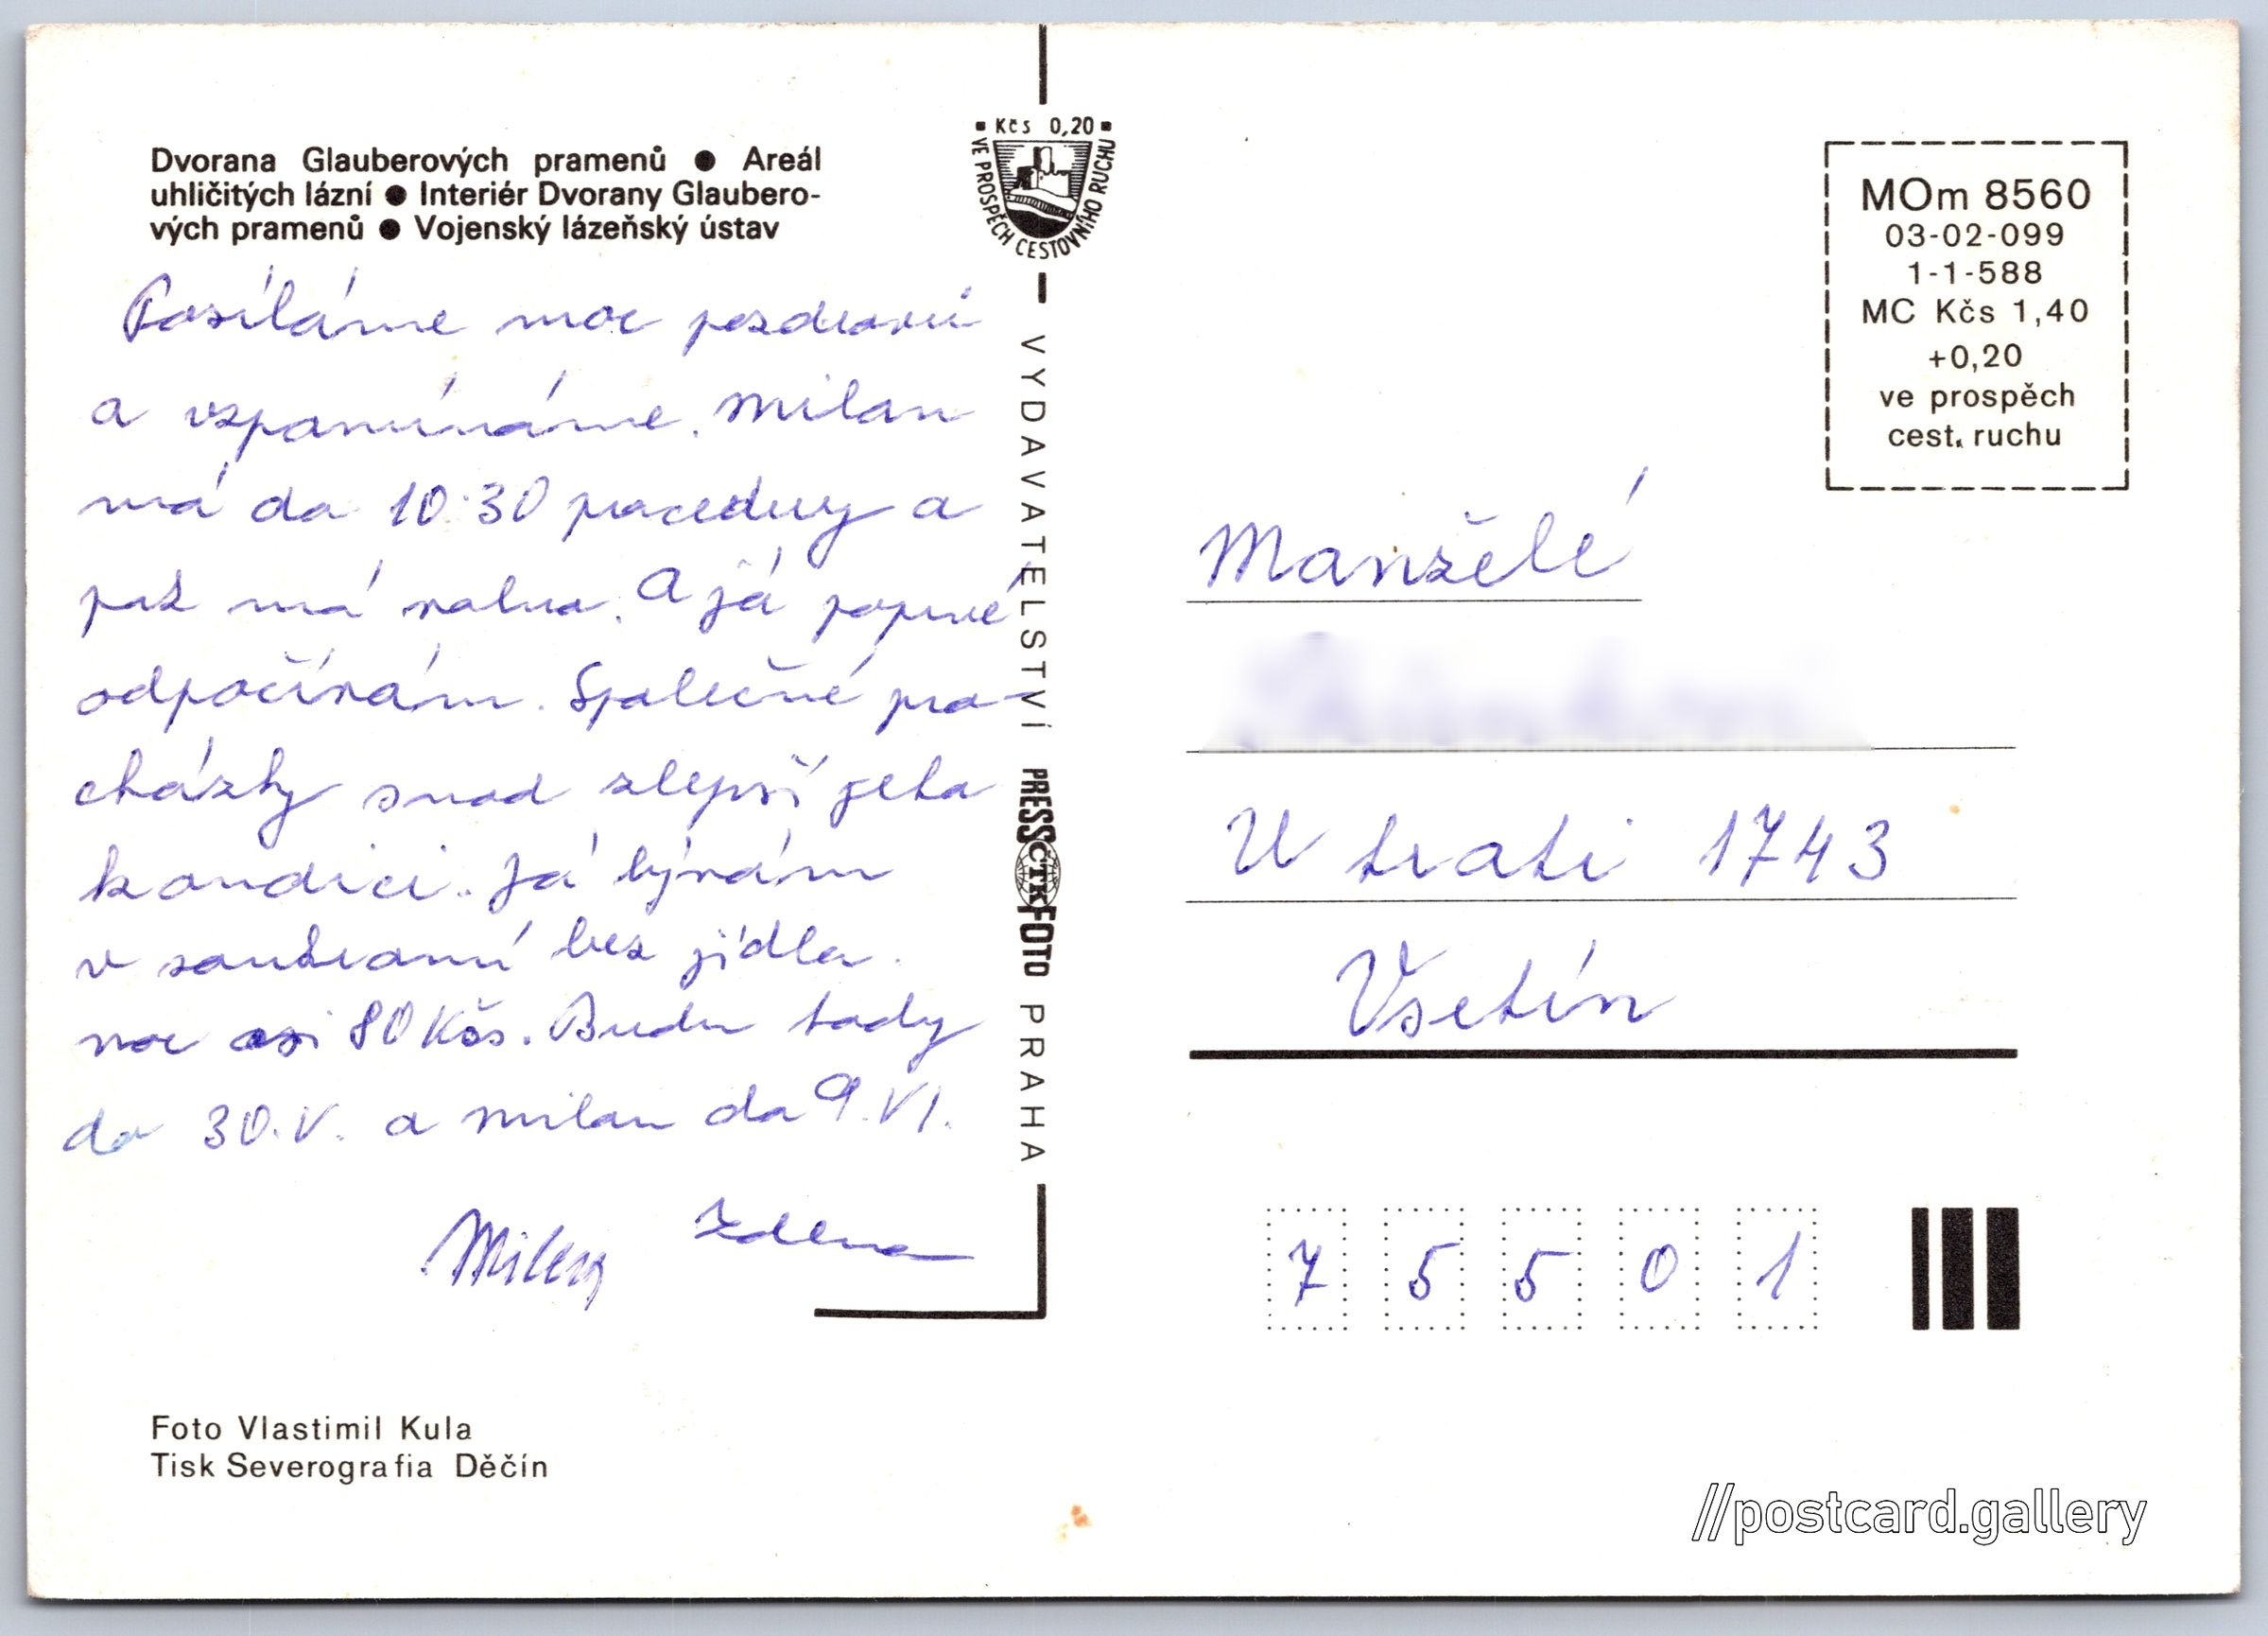 Dvorana Glauberových pramenů ● Areál
uhličitých lázní ● Interiér Dvorany Glaubero-
vých pramenů ● Vojenský lázeňský ústav
Posíláme moc pozdravů
a vzpomínáme. Milan
má do 10.30 procedury a
pak má volno. A já poprvé
odpočívám. Společné pro-
cházky snad zlepší jeho
kondici. Já bývám
v soukromí bez jídla.
noc asi 80 Kčs. Budu tady
do 30.V. a Milan do 9.VI.
Milan Zdena
Foto Vlastimil Kula
Tisk Severografia Děčín
■ Kčs 0,20 ■
VE PROSPĚCH CESTOVNÍHO RUCHU
VYDAVATELSTVÍ PRESSFOTO PRAHA
ČTK
MOm 8560
03-02-099
1-1-588
MC Kčs 1,40
+0,20
ve prospěch
cest. ruchu
Manželé
U trati 1743
Vsetín
7 5 5 0 1
//postcard.gallery